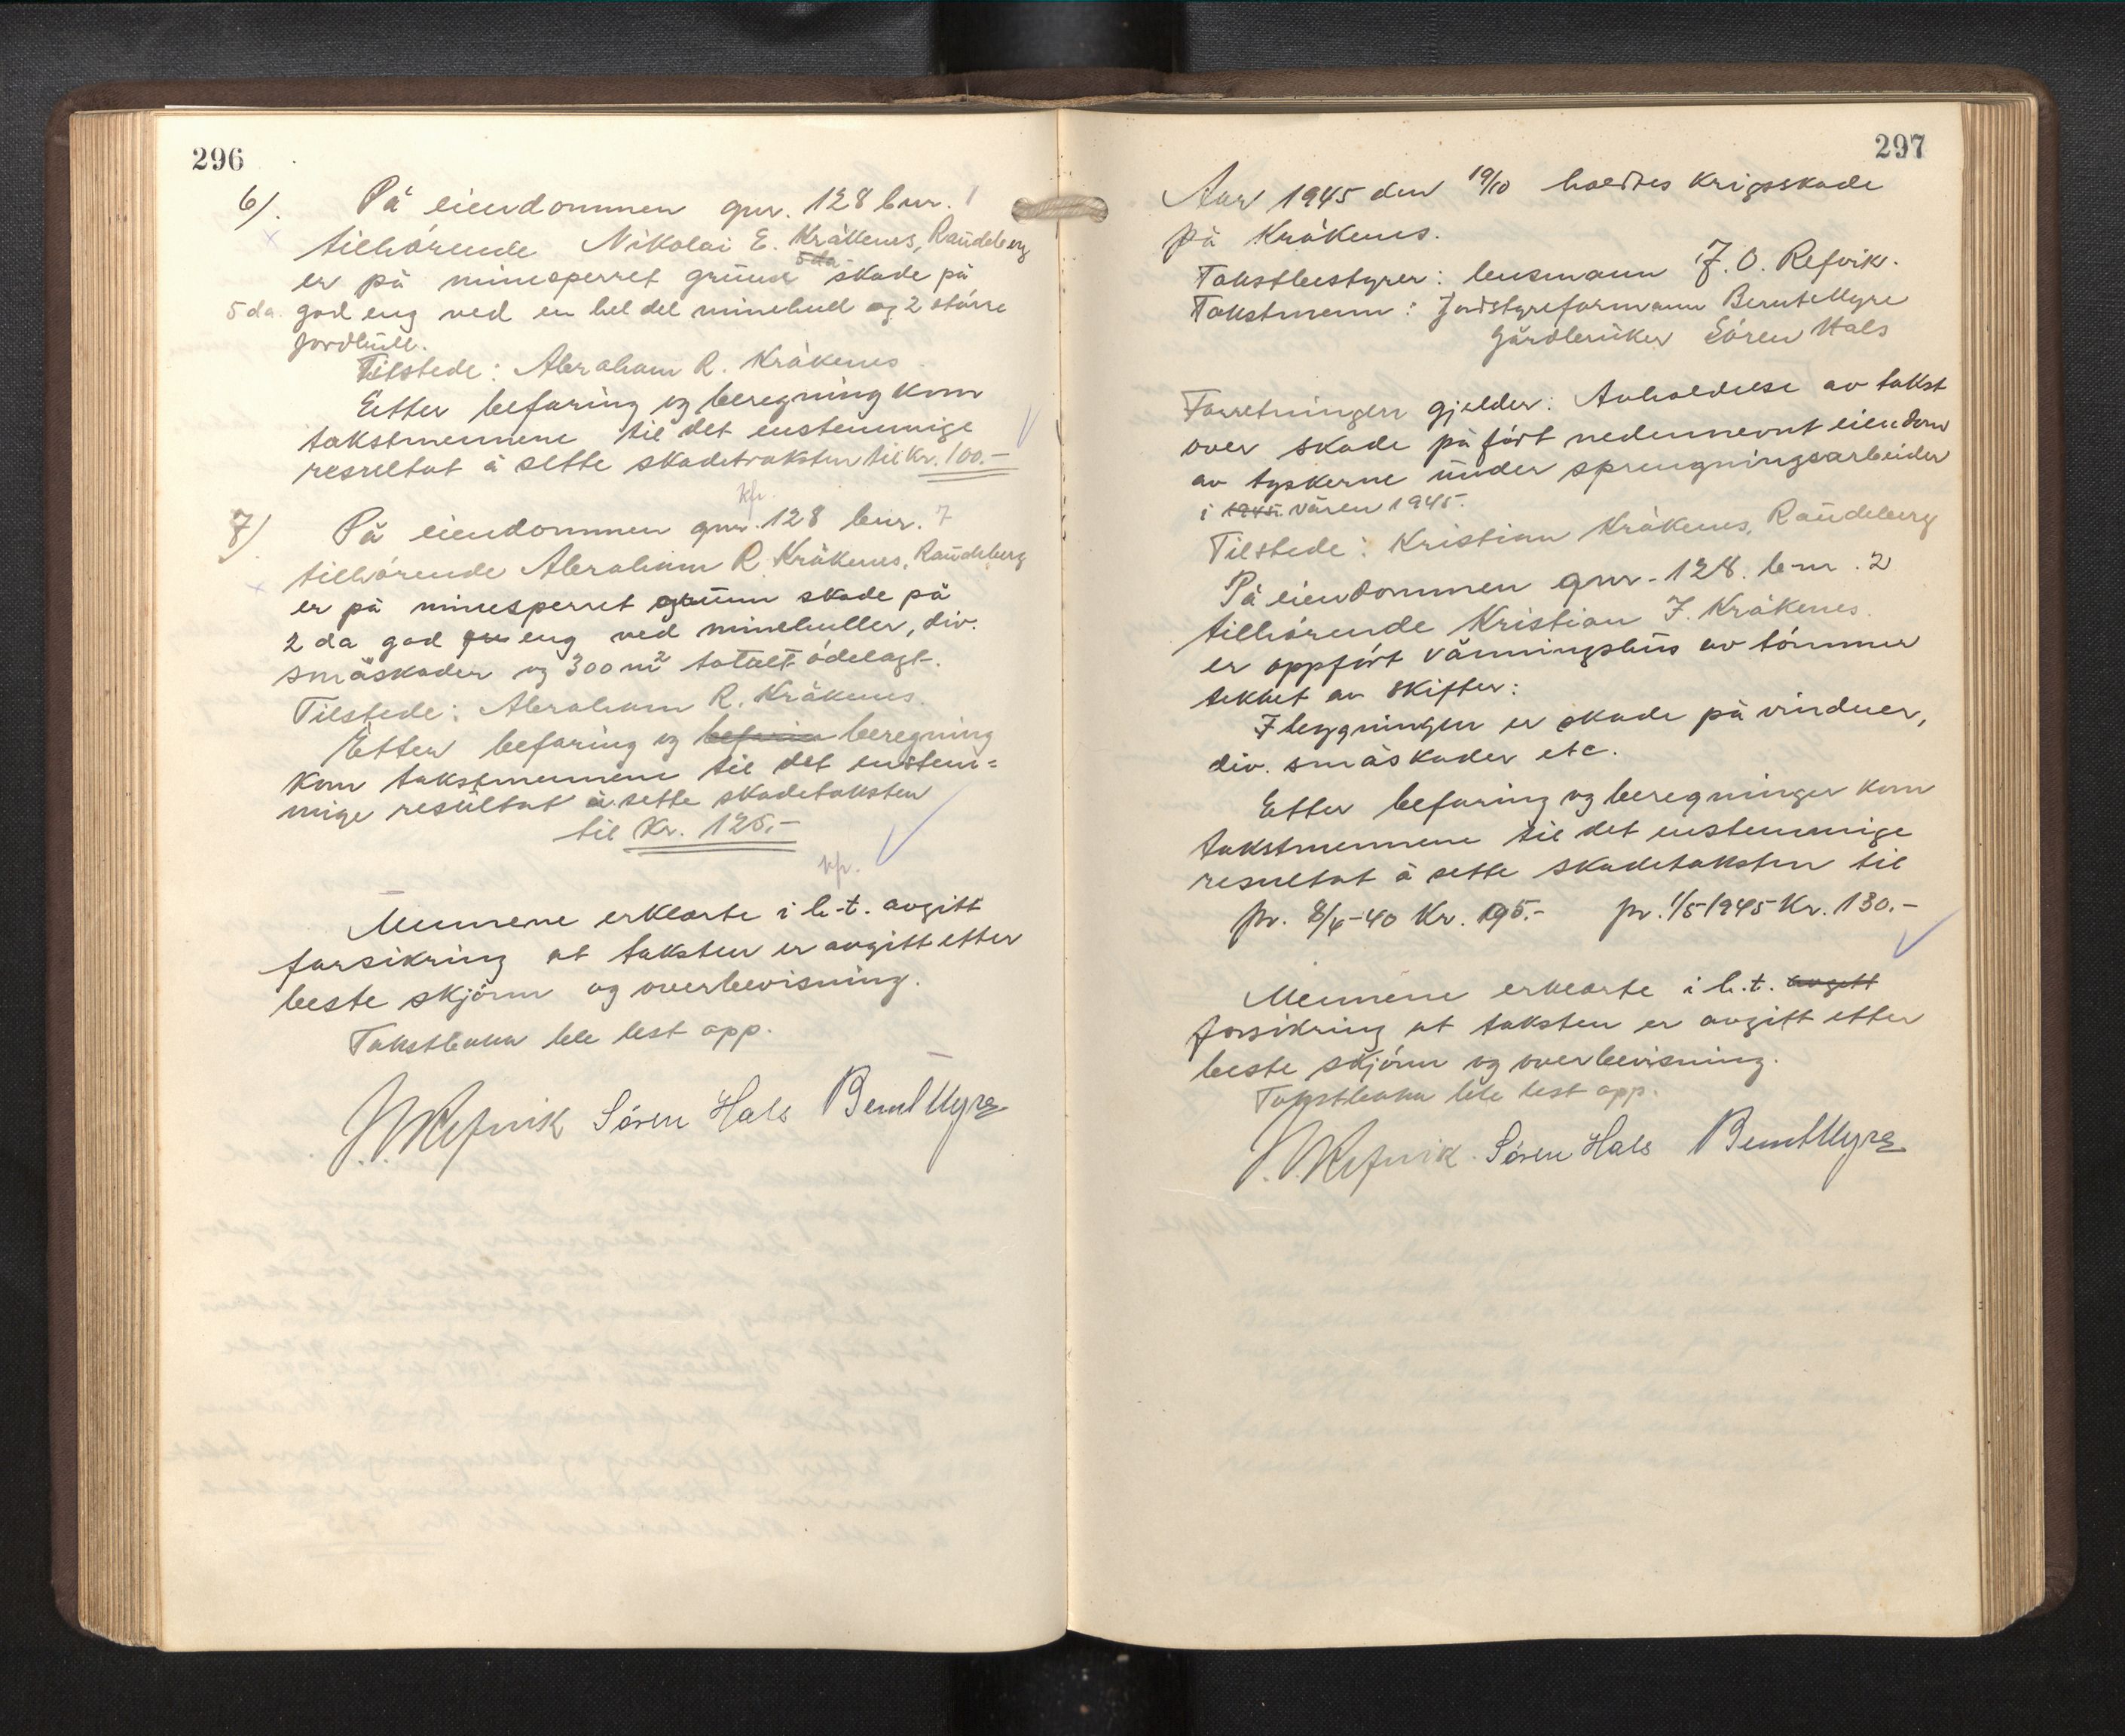 296
6). På eiendommen gnr. 128 bnr. 1
tilhörende Nikolai E. Kråkenes, Raudeberg
5 da
er på minesperret grunn skade på
5 da. god eng ved en hel del minehull og 2 större
jordhull.
Tilstede: Abraham R. Kråkenes
Etter befaring og beregning kom
takstmennene til det enstemmige
resultat å sette skadetaksten til Kr. 100.-
kfr.
7) På eiendommen gnr. 128 bnr. 7
tilhörende Abraham R. Kråkenes, Raudeberg
er på minesperret grunn skade på
2 da god eng ved minehuller, div.
småskader og 300 m2 totalt ödelagt.
Tilstede: Abraham R. Kråkenes.
Etter befaring og befarin beregning
kom takstmennene til det enstem=
mige resultat å sette skadetaksten
til Kr. 125.-
kfr.
Mennene erklærte i h.t. avgitt
forsikring at taksten er avgitt etter
beste skjönn og overbevisning.
Takstboka ble lest opp.
J. O. Refvik Sören Hals Bernt Myre
297
Aar 1945 den 19/10 holdtes krigsskade
på Kråkenes.
Takstbestyrer: lensmann J. O. Refvik.
Takstmenn: Jordstyreformann Bernt Myre
Gårdbruker Sören Hals
Forretningen gjelder: Avholdelse av takst
over skade påfört nedennevnt eiendom
av tyskerne under sprengningsarbeider
i 1945. våren 1945.
Tilstede: Kristian Kråkenes, Raudeberg
På eiendommen gnr. 128. b-nr. 2
tilhörende Kristian J. Kråkenes.
er oppfört våningshus av tömmer
tekket av skifter:
I bygningen er skade på vinduer,
div. småskader etc.
Etter befaring og beregninger kom
takstmennene til det enstemmige
resultat å sette skadetaksten til
pr. 8/4-40 Kr. 195.- pr. 1/5 1945 Kr. 130.-
Mennene erklærte i h.t. avgitt
forsikring at taksten er avgitt etter
beste skjönn og overbevisning.
Takstboka ble lest opp.
J. O. Refvik Sören Hals Bernt Myre